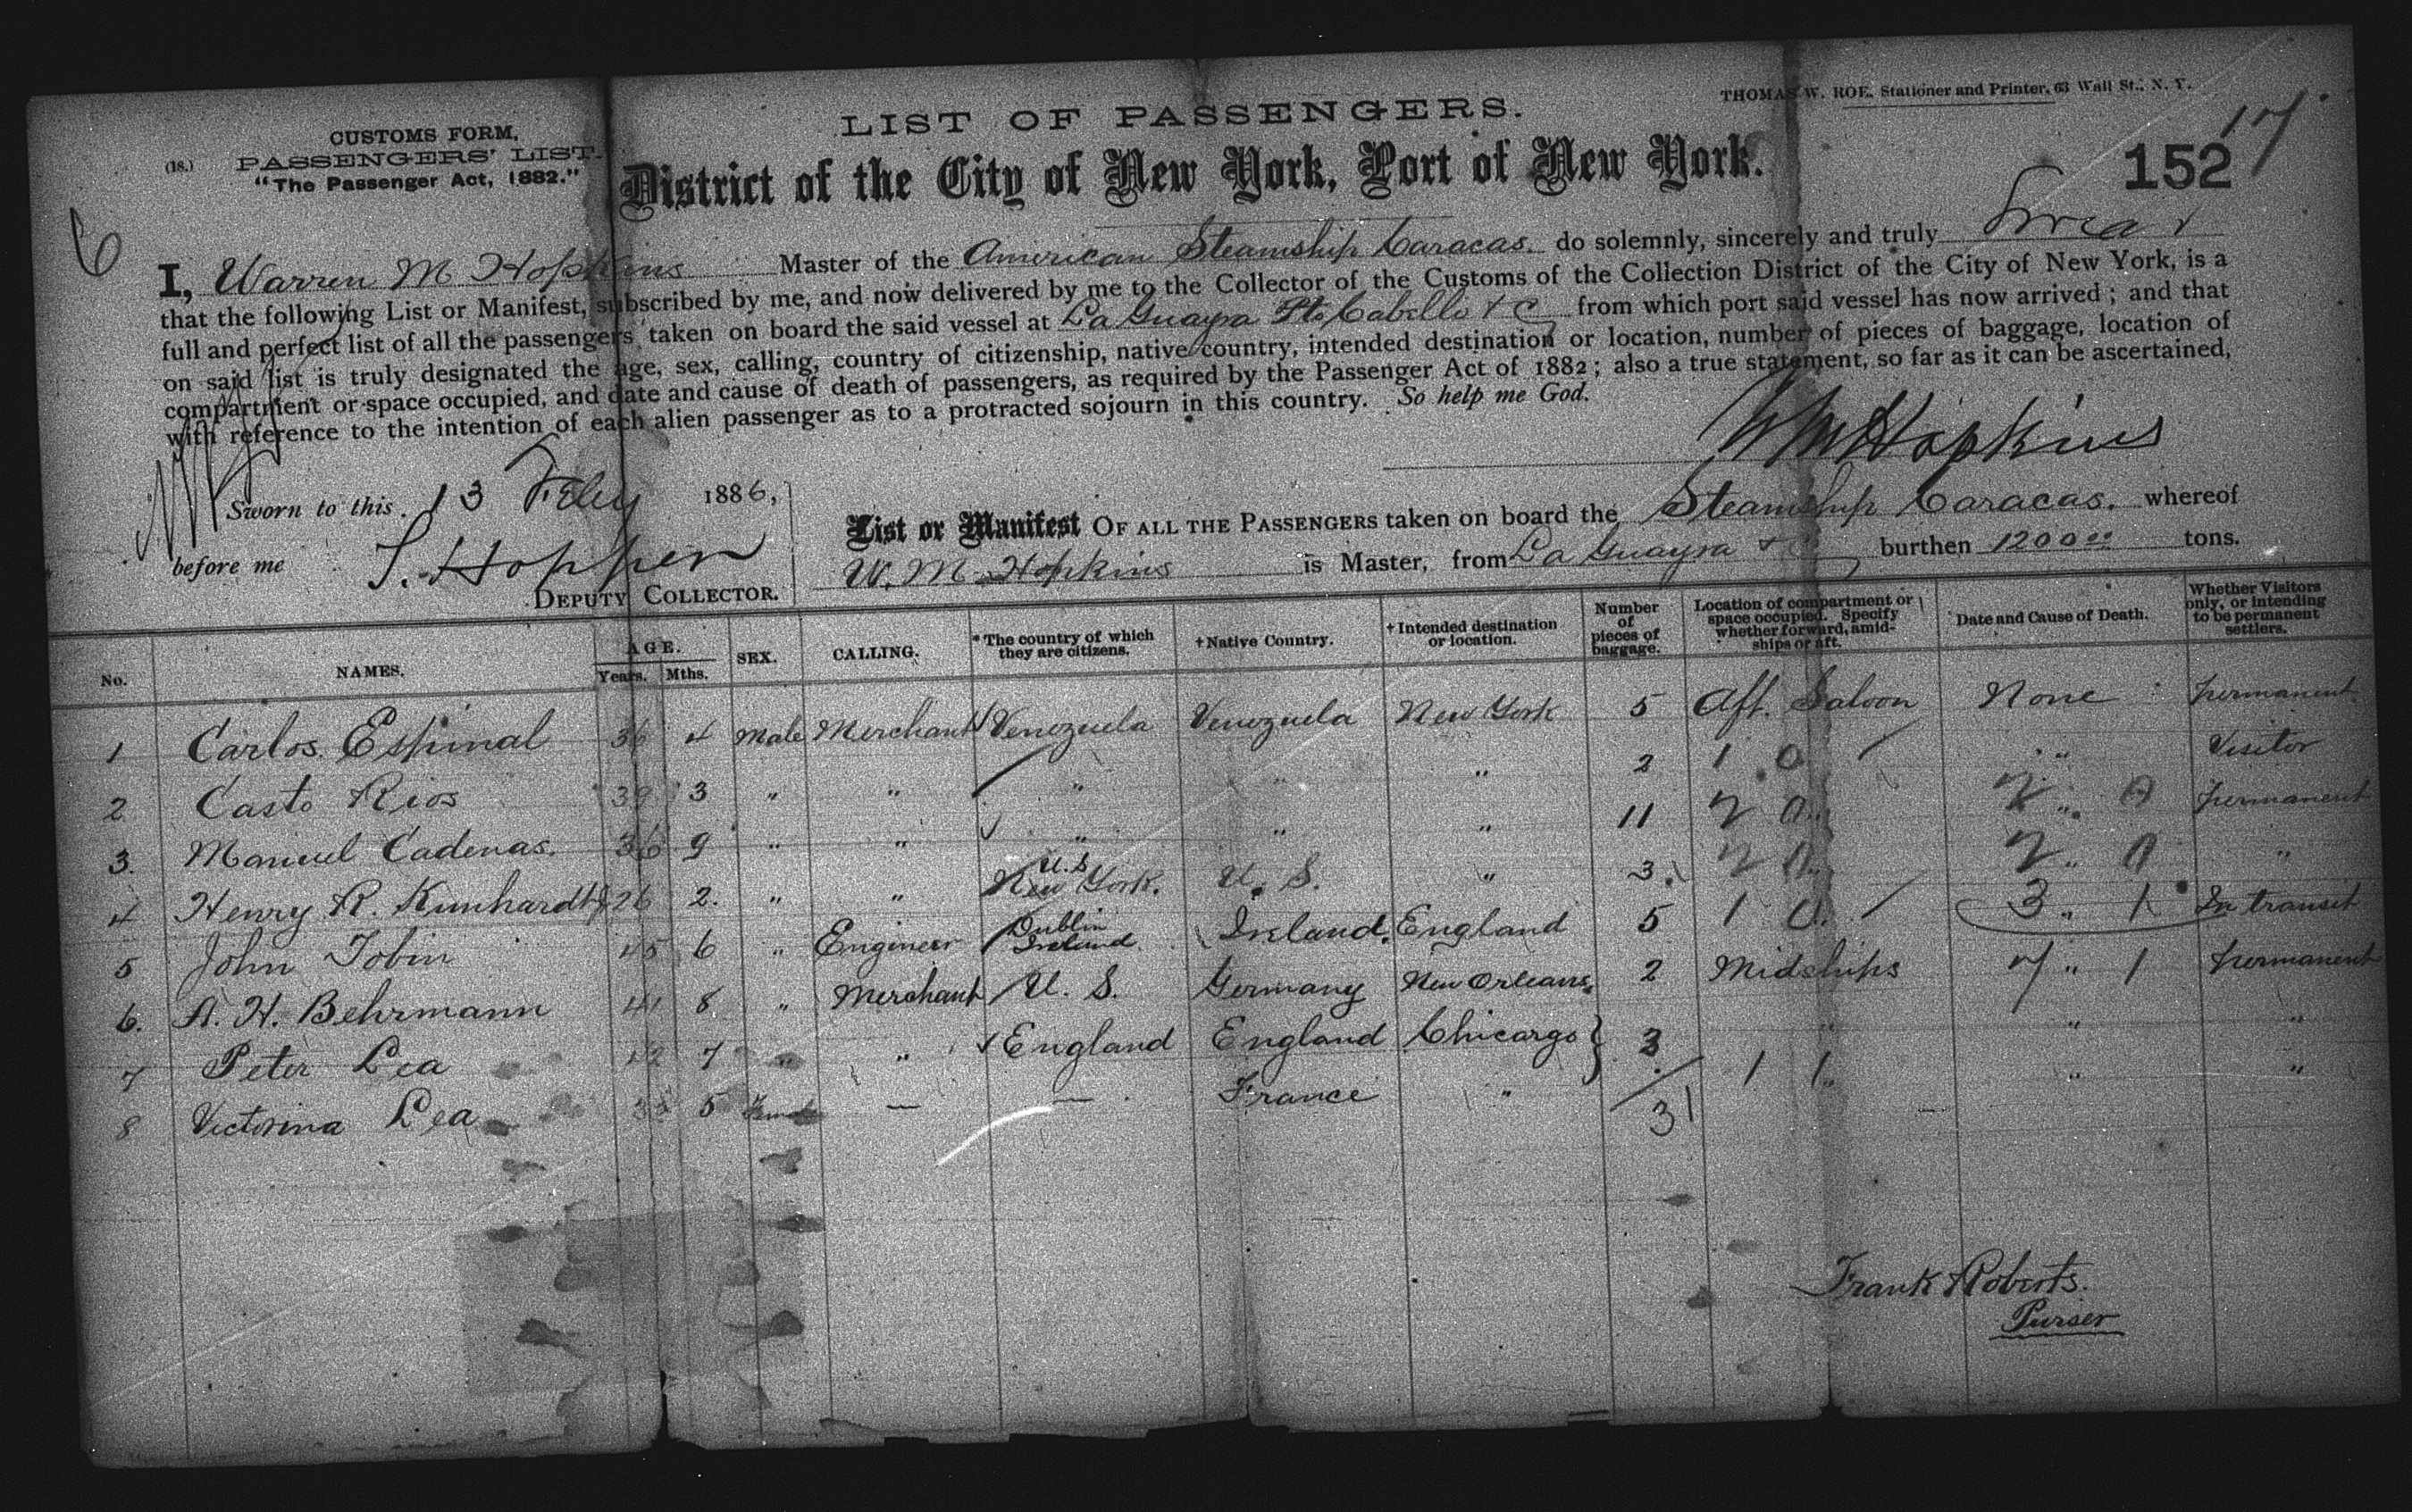 THOMAS W. ROE. Stationer and Printer, 63 Wall St., N. Y.
LIST OF PASSENGERS.
CUSTOMS FORM,
(18.) PASSENGERS' LIST.
"The Passenger Act, 1882."
17
152
District of the City of New York, Port of New York.
6
I, Warren M Hopkins Master of the American Steamship Caracas. do solemnly, sincerely and truly Swear
that the following List or Manifest, subscribed by me, and now delivered by me to the Collector of the Customs of the Collection District of the City of New York, is a
full and perfect list of all the passengers taken on board the said vessel at La Guayra Pto Cabello + C from which port said vessel has now arrived; and that
on said list is truly designated the age, sex, calling, country of citizenship, native country, intended destination or location, number of pieces of baggage, location of
compartment or space occupied, and date and cause of death of passengers, as required by the Passenger Act of 1882; also a true statement, so far as it can be ascertained,
with reference to the intention of each alien passenger as to a protracted sojourn in this country. So help me God.
WM Hopkins
Sworn to this 13 Feby 1886,
before me S. Hopper
DEPUTY COLLECTOR.
List or Manifest OF ALL THE PASSENGERS taken on board the Steamship Caracas. whereof
W. M Hopkins is Master, from La Guayra + C burthen 1200 00 tons.
No. NAMES. AGE. Years. Mths. SEX. CALLING. * The country of which they are citizens. + Native Country. + Intended destination or location. Number of pieces of baggage. Location of compartment or space occupied. Specify whether forward, amidships or aft. Date and Cause of Death. Whether Visitors only, or intending to be permanent settlers.
1 Carlos Espinal 36 4 Male Merchant Venezuela Venezuela New York 5 Aft. Saloon None permanent
2 Casto Rios 39 3 " " " " " 2 1 0 " Visitor
3. Manuel Cadenas. 36 9 " " " " " 11 2 0 " 2 0 permanent
4 Henry R. Kunhardt 26 2. " " U.S New York. U. S. " 3. 2 0 2 " 0 "
5 John Tobin 45 6 " Engineer Dublin Ireland Ireland. England 5 1 0 3 " 1 In transit
6. A. H. Behrmann 41 8 " Merchant U. S. Germany New Orleans. 2 Midships 7 " 1 permanent
7 Peter Lea 42 7 " " England England Chicargo } 3 " " "
8 Victorina Lea 35 5 Female — — France " 1 1 " " "
31
Frank Roberts.
Purser